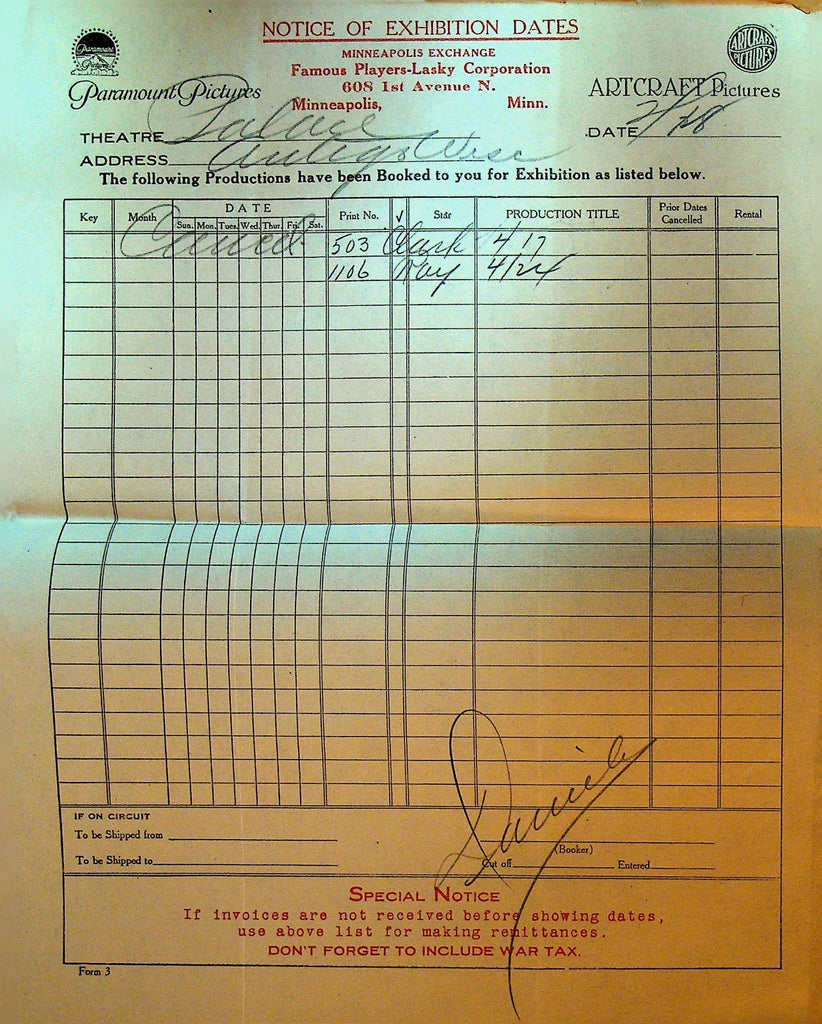 NOTICE OF EXHIBITION DATES
MINNEAPOLIS EXCHANGE
Famous Players-Lasky Corporation
608 1st Avenue N.
Minneapolis, Minn.
Paramount Pictures
Paramount Pictures
ARTCRAFT PICTURES
ARTCRAFT Pictures
THEATRE Palace
DATE 2/28
ADDRESS Antigo Wisc
The following Productions have been Booked to you for Exhibition as listed below.
Key Month DATE Print No. √ Star PRODUCTION TITLE Prior Dates Cancelled Rental
Sun. Mon. Tues. Wed. Thur. Fri. Sat.
Cancel 503 Clark 4/17
1106 Ray 4/24
IF ON CIRCUIT
To be Shipped from
To be Shipped to
Daniels
(Booker)
Cut off Entered
SPECIAL NOTICE
If invoices are not received before showing dates,
use above list for making remittances.
DON'T FORGET TO INCLUDE WAR TAX.
Form 3